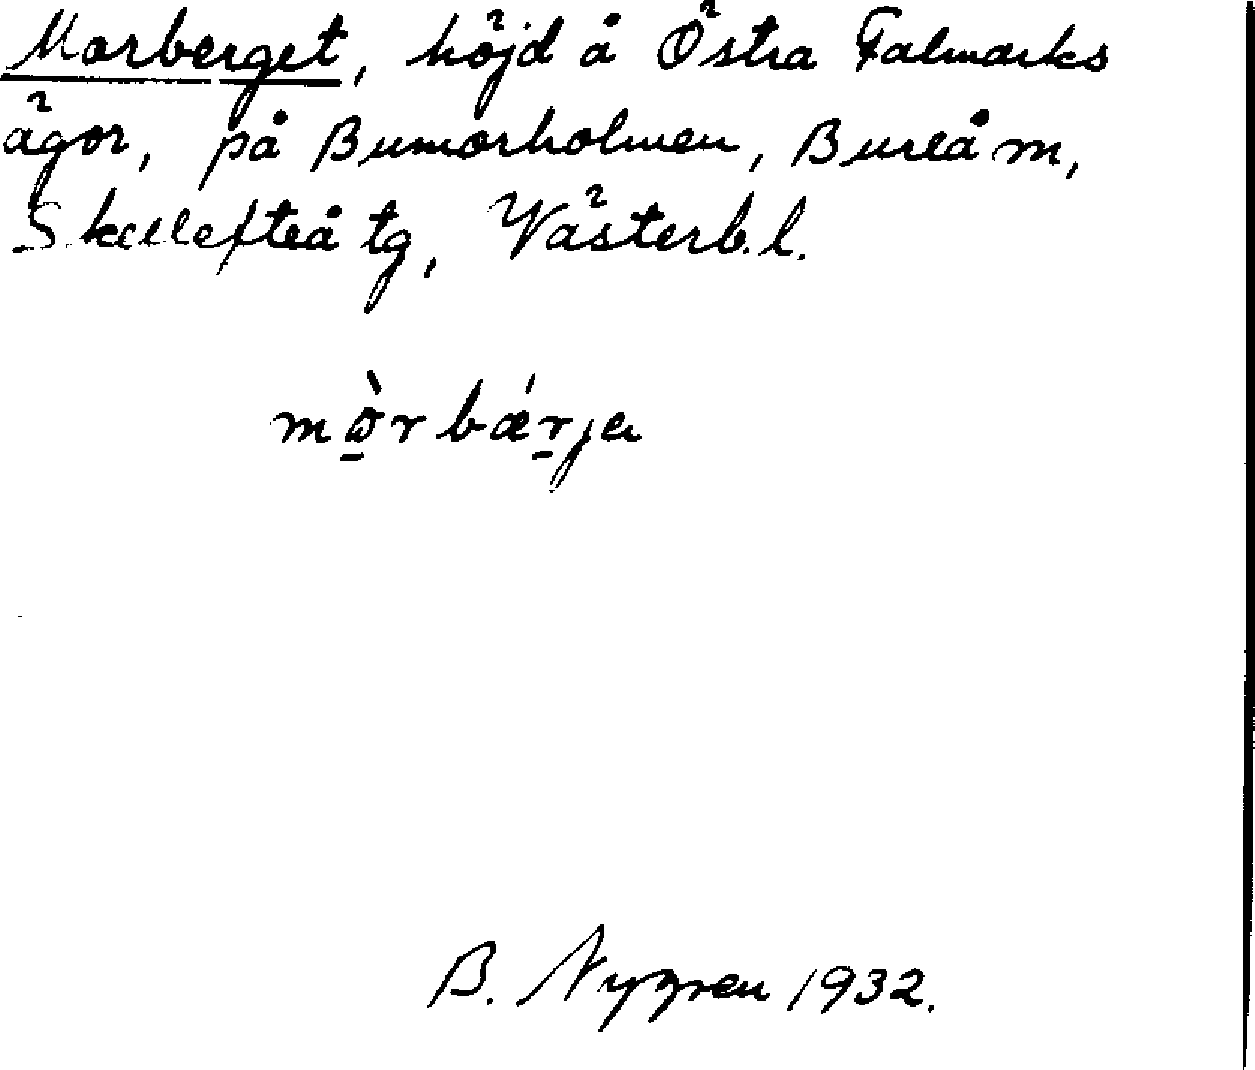 Morberget, höjd å Östra Falmarks
ägor, på Bumorholmen, Bureå m,
Skellefteå tg, Västerb. l.
mòrbǽrja
B. Nygren 1932.